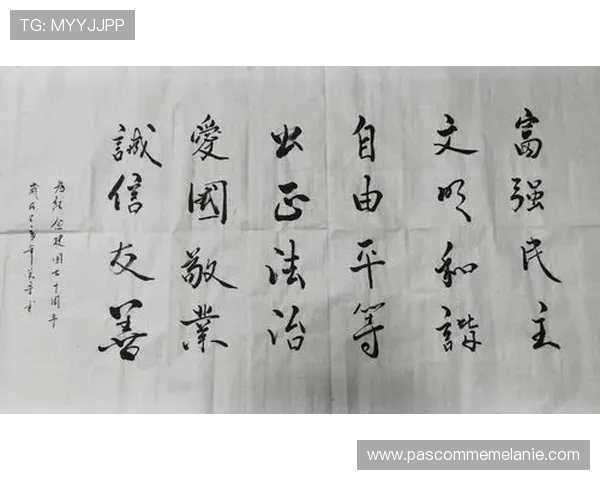 TG: MYYJJPP
富强民主
文明和諧
自由平等
公正法治
愛國敬業
誠信友善
为纪念建国七十周年
岁在己亥年
www.pascommemelanie.com